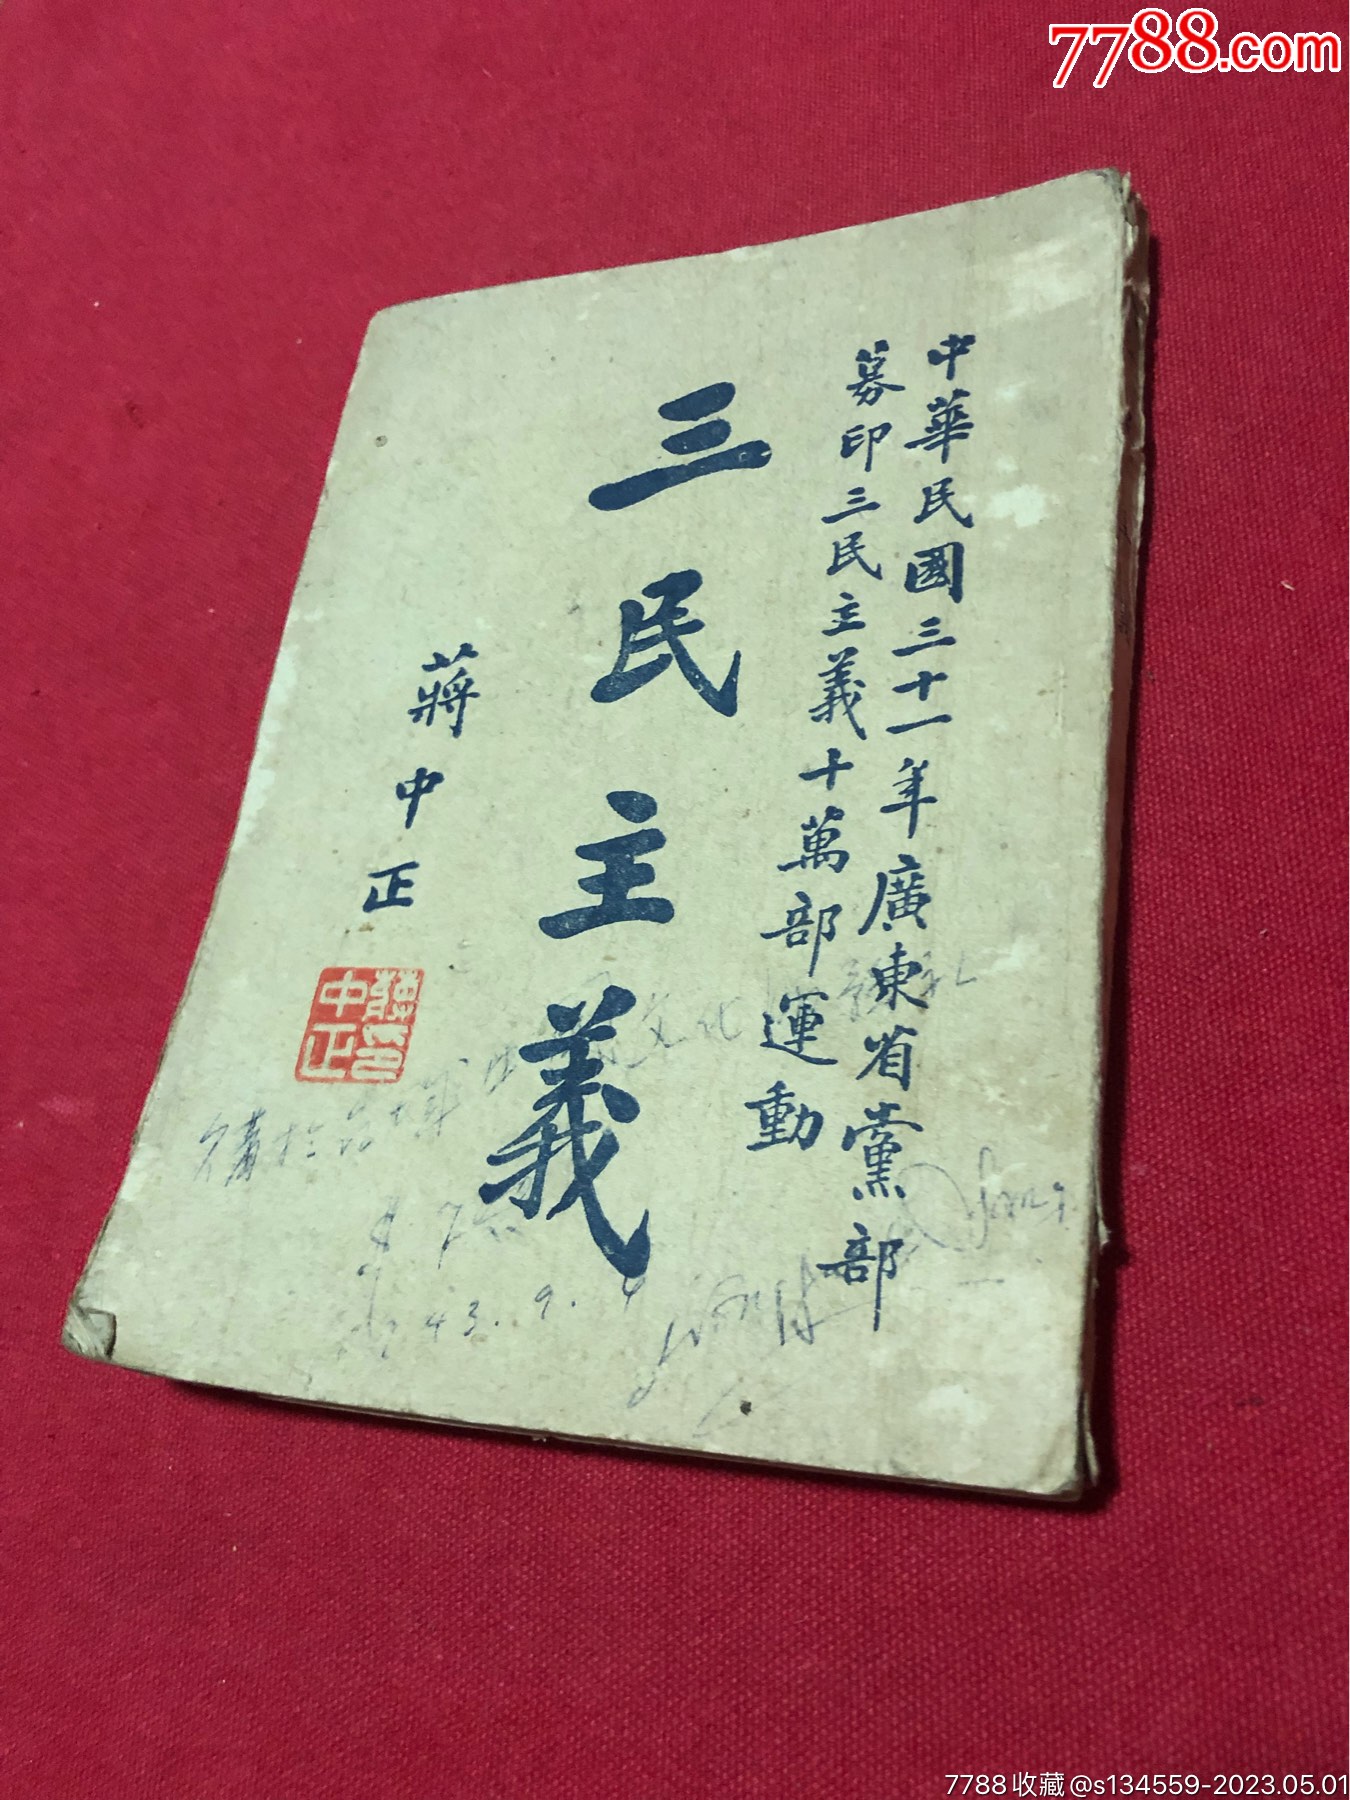 7788.com
中華民國三十一年廣東省黨部
募印三民主義十萬部運動
三民主義
蔣中正
蔣中正印
43.9.9
7788收藏@s134559-2023.05.01